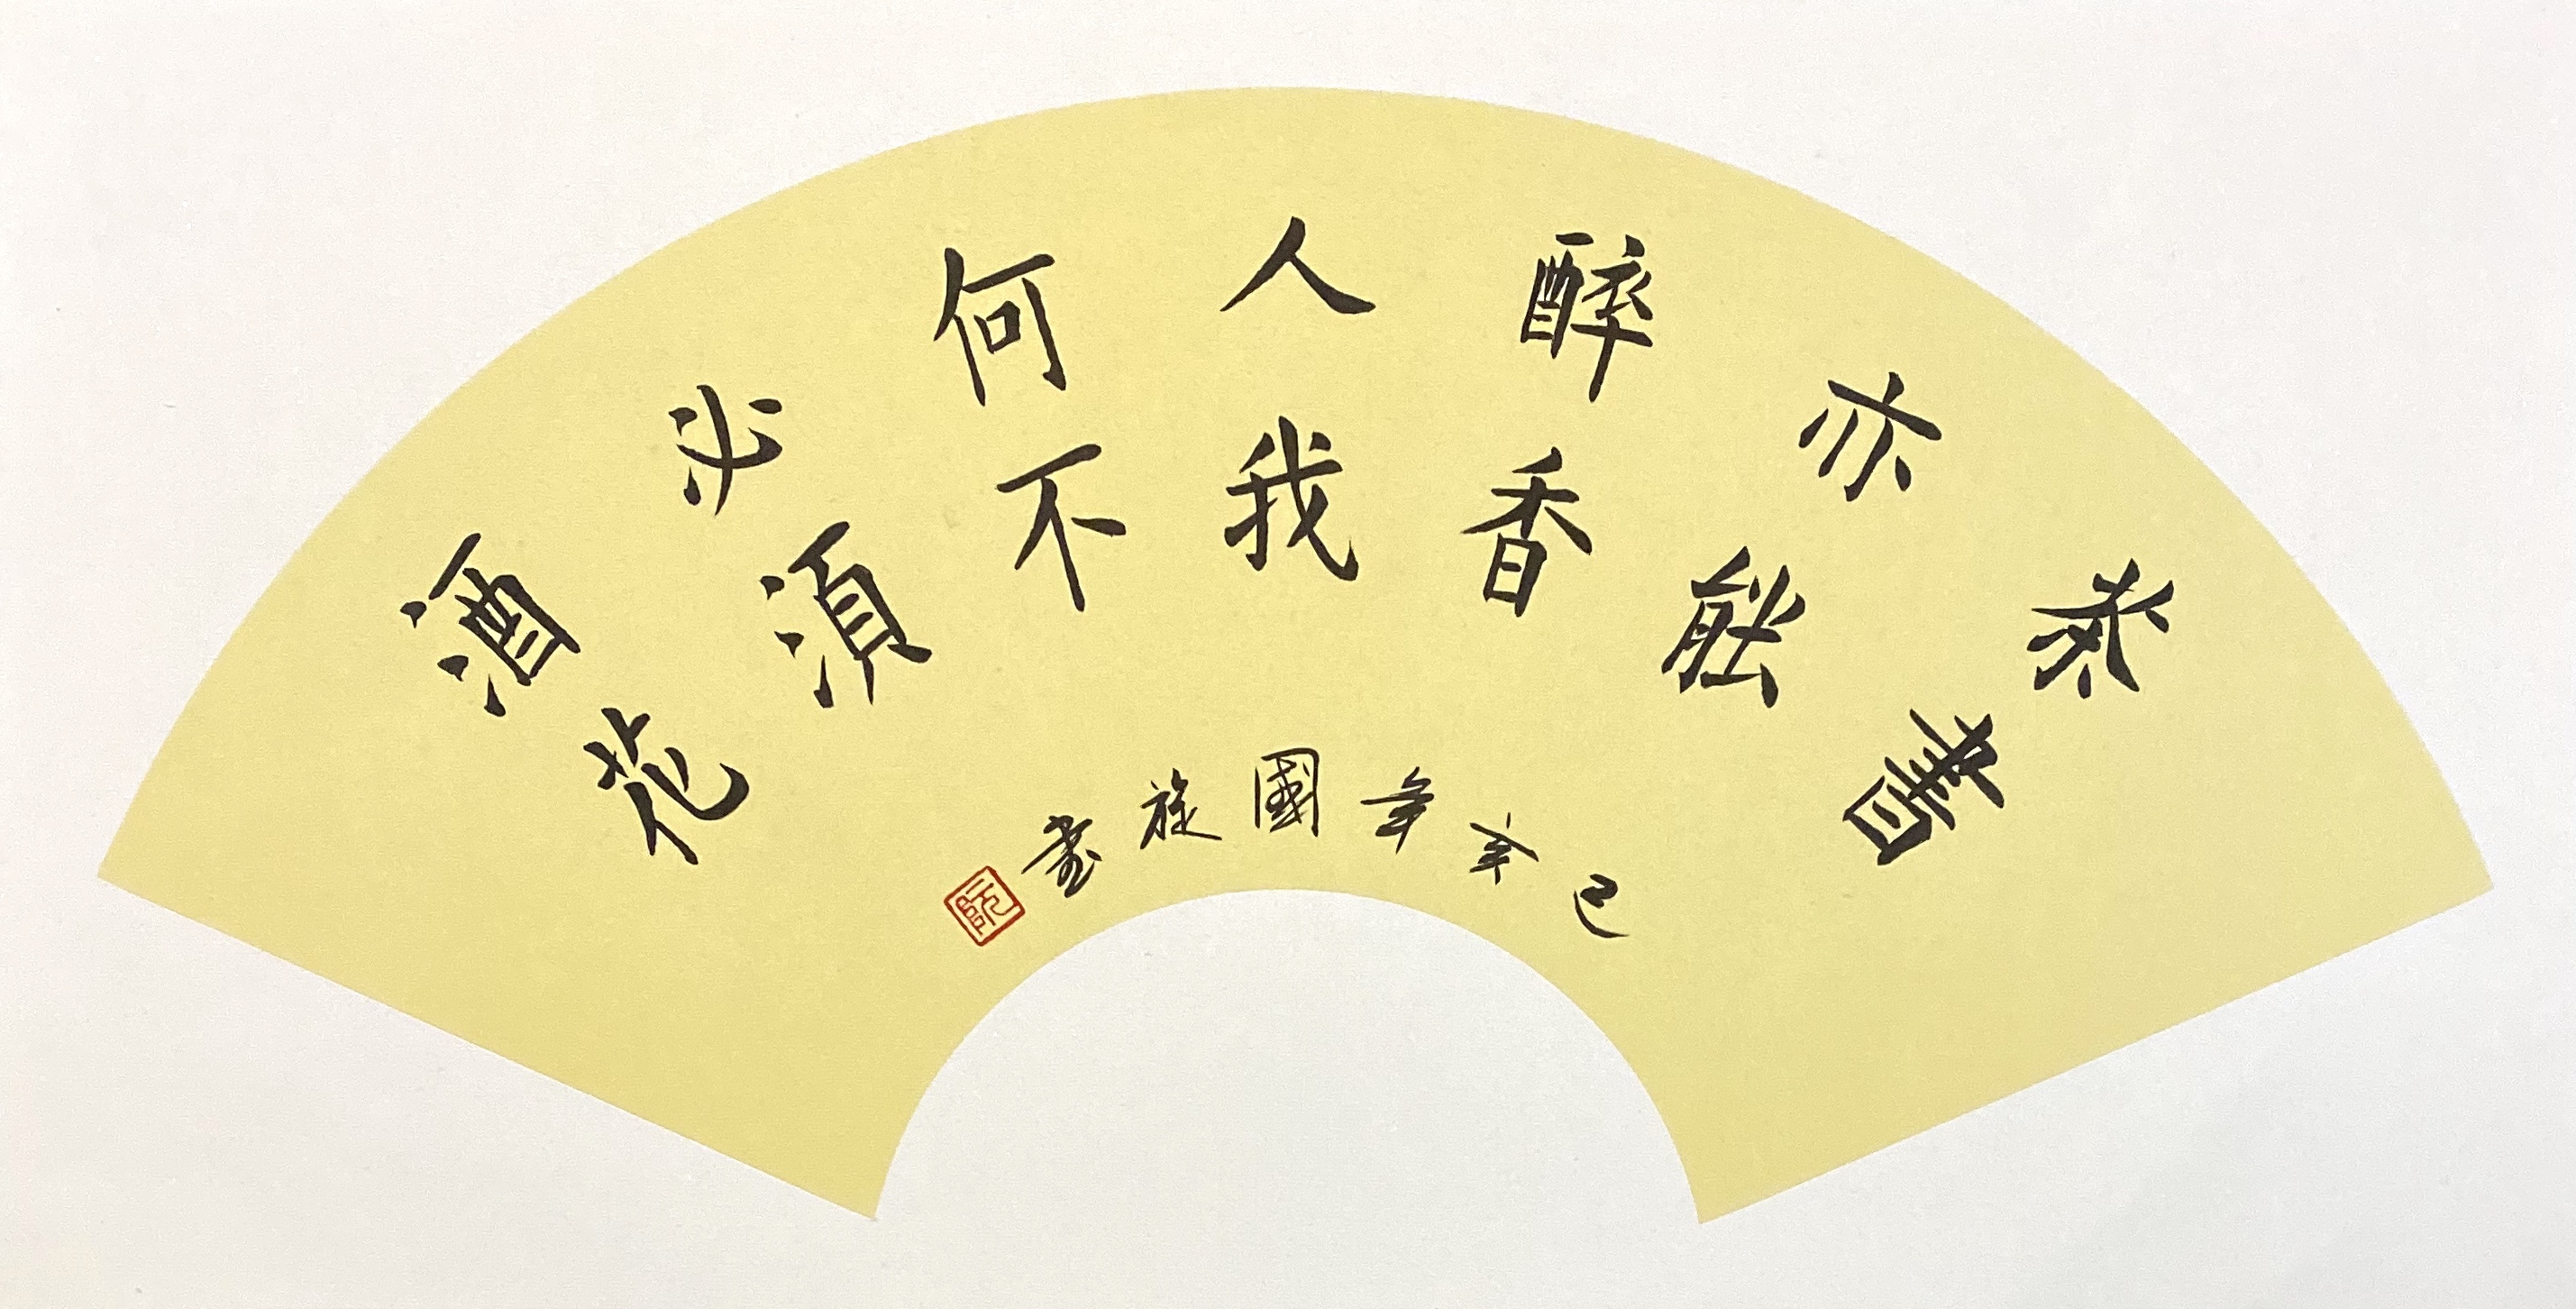 茶亦醉人何必酒
書能香我不須花
己亥年國旋書